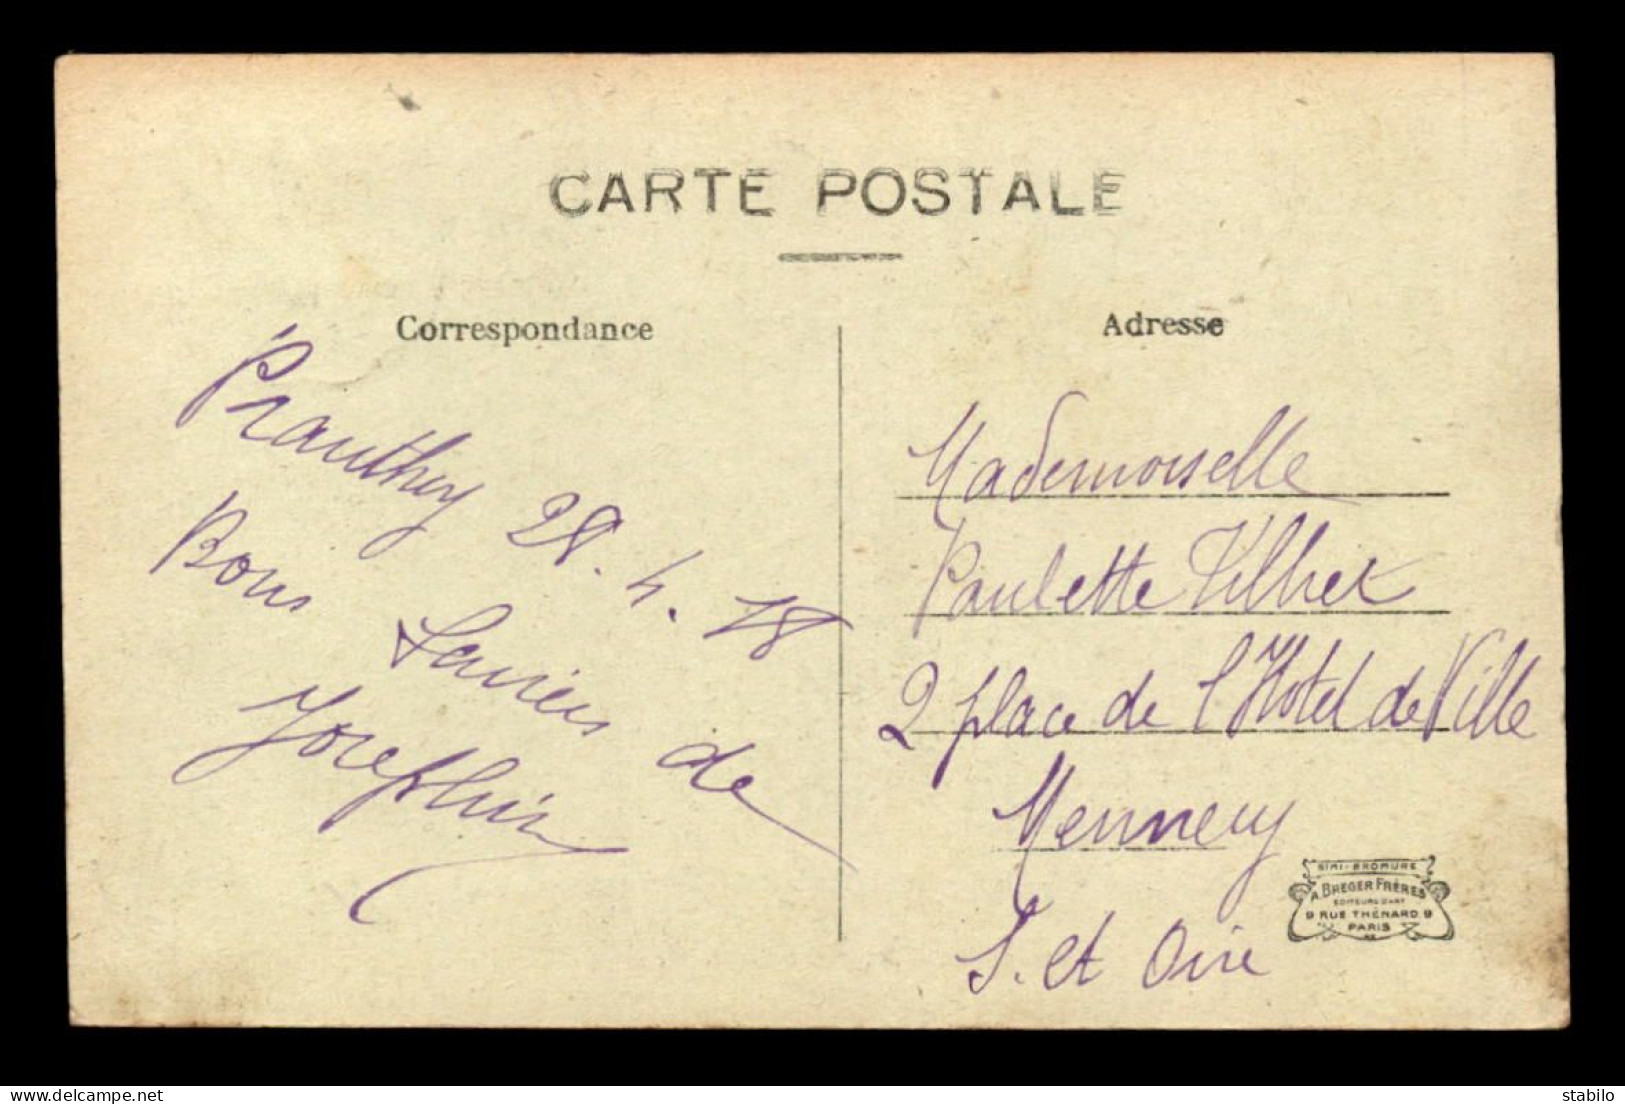 CARTE POSTALE
Correspondance
Prauthoy 28.4.18
Bons Baisers de
Josephin
Adresse
Mademoiselle
Paulette
2 place de l'Hotel de Ville
Mennecy
S. et Oise
SIMI-BROMURE
A. BREGER FRÈRES
EDITEURS D'ART
9 RUE THÉNARD 9
PARIS
delcampe.net
stabilo